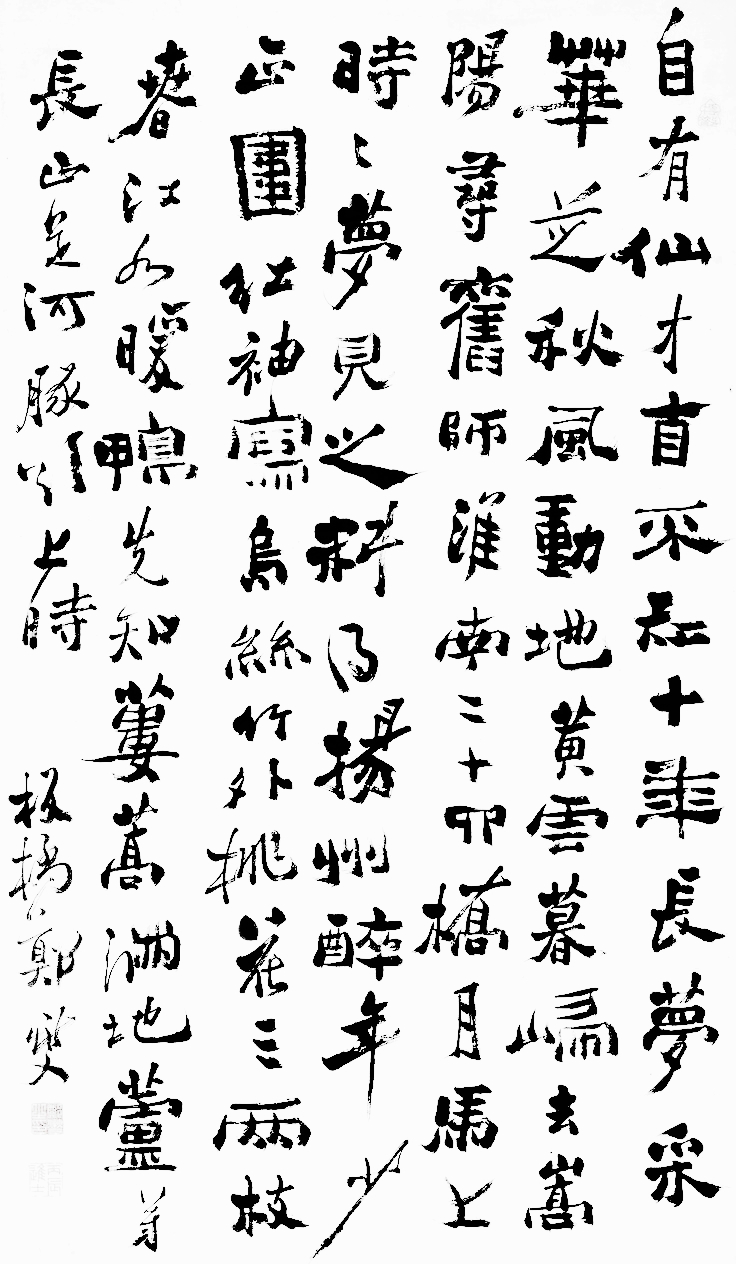 自有仙才自不知十年長夢采
華芝秋風動地黃雲暮歸去嵩
陽尋舊師淮南二十四橋月馬上
時〻夢見之料得揚州醉年少
正圍紅袖寫烏絲竹外桃花三兩枝
春江水暖鴨先知蔞蒿滿地蘆芽
長正是河豚欲上時
板橋鄭燮